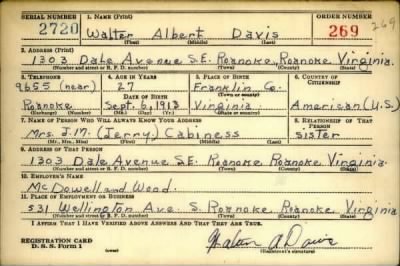 SERIAL NUMBER 1. NAME (Print) ORDER NUMBER
2720 Walter Albert Davis 269 269
(First) (Middle) (Last)
2. ADDRESS (Print)
1303 Dale Avenue S.E. Roanoke, Roanoke, Virginia.
(Number and street or R. F. D. number) (Town) (County) (State)
3. TELEPHONE 4. AGE IN YEARS 5. PLACE OF BIRTH 6. COUNTRY OF CITIZENSHIP
9655 (near) 27 Franklin Co.
DATE OF BIRTH
Roanoke Sept. 6, 1913 Virginia American (U.S.)
(Exchange) (Number) (Mo.) (Day) (Yr.) (State or country)
7. NAME OF PERSON WHO WILL ALWAYS KNOW YOUR ADDRESS 8. RELATIONSHIP OF THAT PERSON
Mrs. J.M. (Jerry) Cabiness sister
(Mr., Mrs., Miss) (First) (Middle) (Last)
9. ADDRESS OF THAT PERSON
1303 Dale Avenue S.E. Roanoke Roanoke Virginia.
(Number and street or R. F. D. number) (Town) (County) (State)
10. EMPLOYER'S NAME
McDowell and Wood.
11. PLACE OF EMPLOYMENT OR BUSINESS
531 Wellington Ave. S. Roanoke Roanoke Virginia
(Number and street or R. F. D. number) (Town) (County) (State)
I AFFIRM THAT I HAVE VERIFIED ABOVE ANSWERS AND THAT THEY ARE TRUE.
REGISTRATION CARD
D. S. S. Form 1 (over) Walter A Davis
(Registrant's signature)